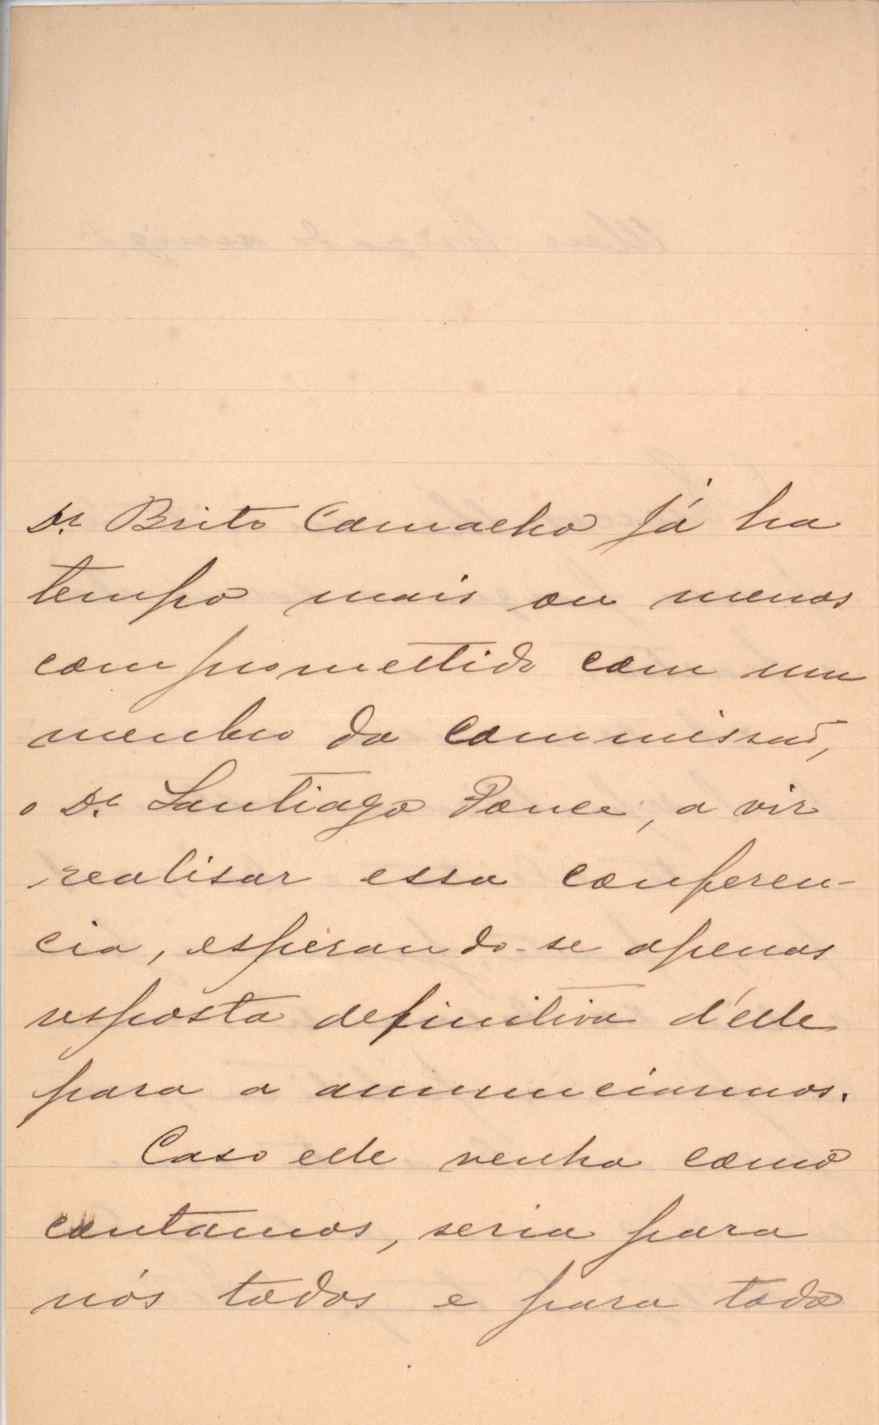 Dr. Brito Camacho já ha
tempo mais ou menos
compromettido com um
membro da commissaõ,
o Dr. Santiago Ponce, a vir
realisar essa conferen-
cia, esperando-se apenas
resposta definitiva d'elle
para a annunciarmos.
Caso elle venha como
contamos, seria para
nós todos e para todo